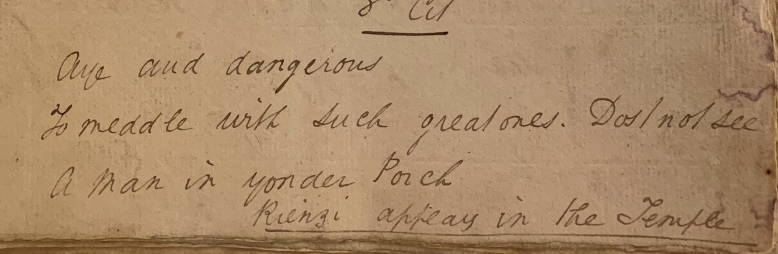 Cit
Aye and dangerous
To meddle with such great ones. Dost not see
A Man in yonder Porch
Rienzi appears in the Temple